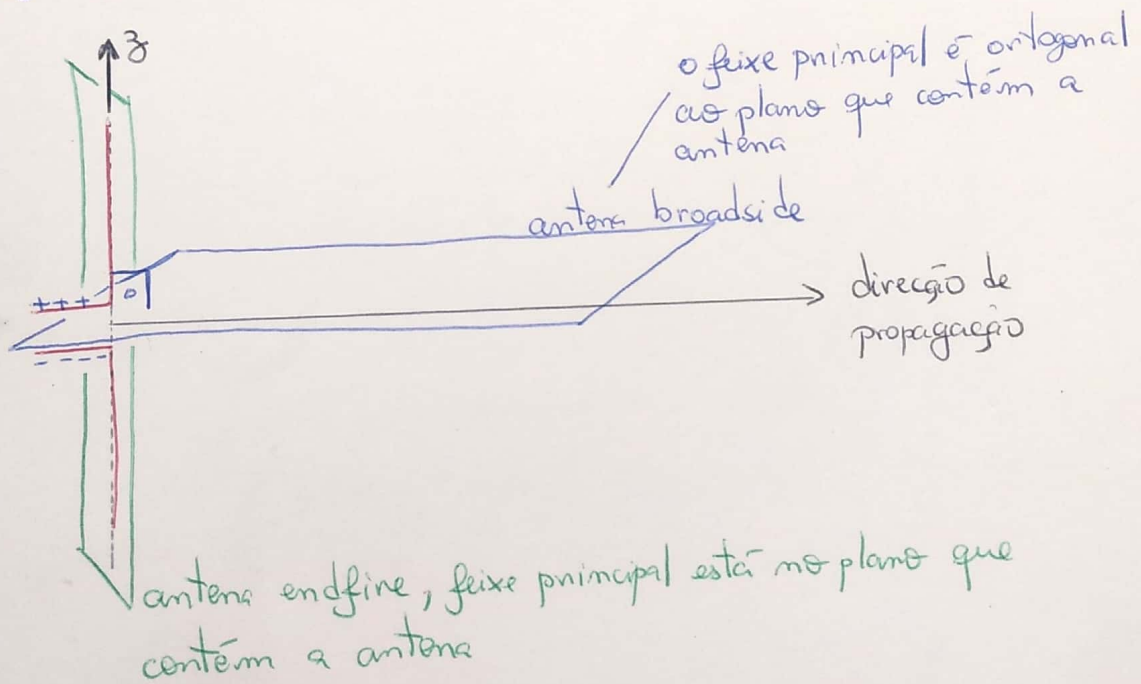 z
o feixe principal é ortogonal
ao plano que contém a
antena
antena broadside
+ + +
direcção de
propagação
- - - -
antena endfire, feixe principal está no plano que
contém a antena